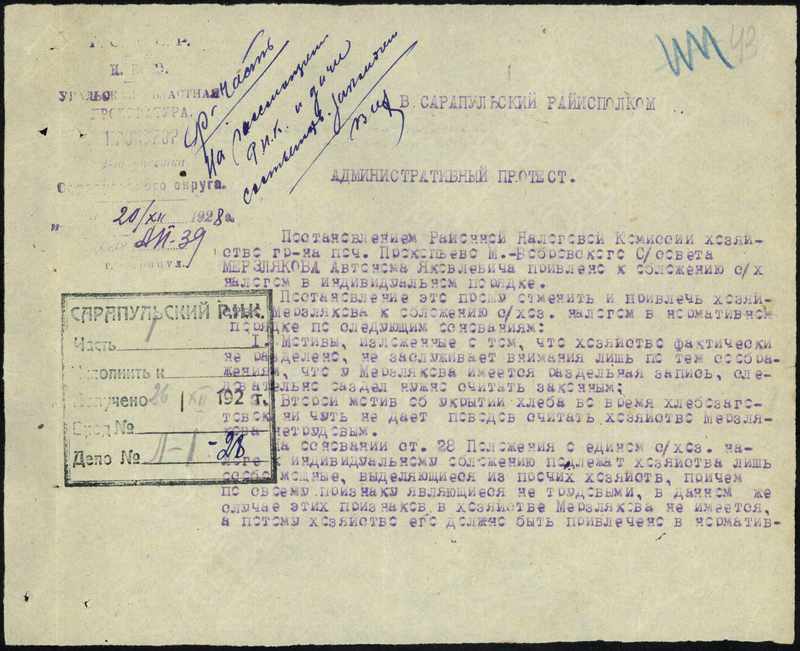 43
УРАЛЬСКАЯ ОБЛАСТНАЯ
ПРОКУРАТУРА.
ПРОКУРОР
округа.
20/XII 1928 г.
№ АП-39
ф. часть
На рассмотрен.
р.н.к. и дачи
В САРАПУЛЬСКИЙ РАЙИСПОЛКОМ
АДМИНИСТРАТИВНЫЙ ПРОТЕСТ.
Постановлением Районной Налоговой Комиссии хозяй-
ство гр-на поч. Прокопьево М.-Бобровского С/совета
МЕРЗЛЯКОВА Автонома Яковлевича привлено к обложению с/х
налогом в индивидуальном порядке.
Постановление это прошу отменить и привлечь хозяй-
Мерзлякова к обложению с/хоз. налогом в нормативном
порядке по следующим основаниям:
I. Мотивы, изложенные о том, что хозяйство фактически
не разделено, не заслуживает внимания лишь по тем сообра-
жениям, что у Мерзлякова имеется раздельная запись, сле-
довательно раздел нужно считать законным;
Второй мотив об укрытии хлеба во время хлебозаго-
товок ни чуть не дает поводов считать хозяйство Мерзля-
кова нетрудовым.
На основании ст. 28 Положения о едином с/хоз. на-
логе к индивидуальному обложению подлежат хозяйства лишь
особо мощные, выделяющиеся из прочих хозяйств, причем
по своему признаку являющиеся не трудовыми, в данном же
случае этих признаков в хозяйстве Мерзлякова не имеется,
а потому хозяйство его должно быть привлечено в норматив-
САРАПУЛЬСКИЙ Р.И.К.
Часть
Исполнить к
Получено 26 / XII 192 г.
Вход №
Дело № Л-1-28